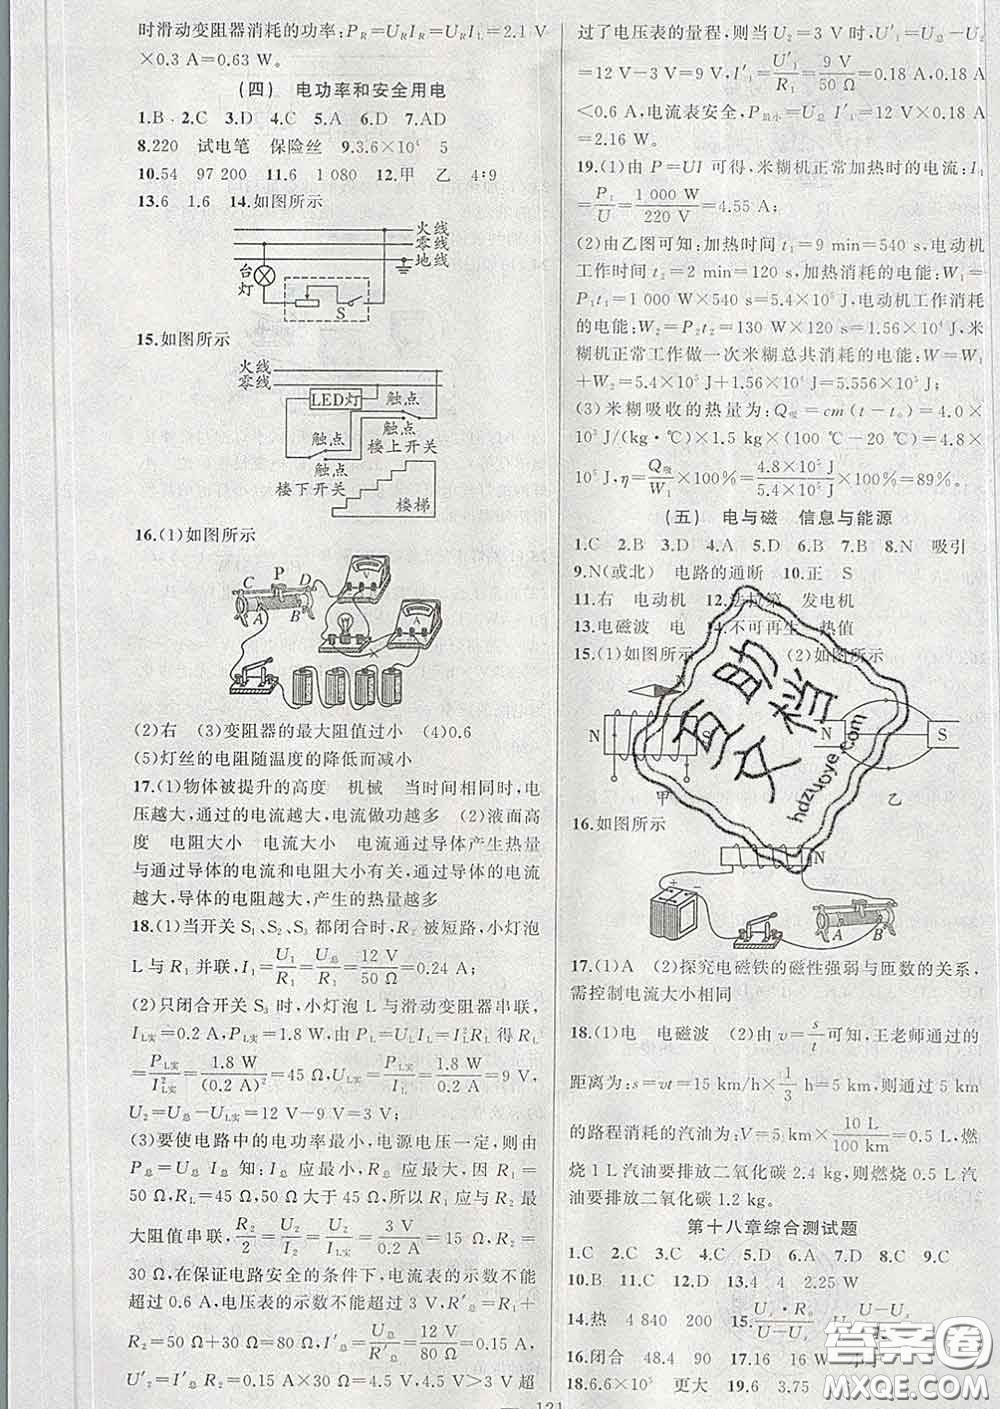 时滑动变阻器消耗的功率:P_R=U_R I_R=U_R I_L=2.1 V
×0.3 A=0.63 W。
(四) 电功率和安全用电
1.B 2.C 3.D 4.C 5.A 6.D 7.AD
8.220 试电笔 保险丝 9.3.6×10⁴ 5
10.54 97 200 11.6 1 080 12.甲 乙 4:9
13.6 1.6 14.如图所示
火线
零线
地线
台灯
S
15.如图所示
火线
零线
LED灯
触点
触点
楼上开关
触点
楼下开关
楼梯
16.(1)如图所示
C P D
A B
V
A
(2)右 (3)变阻器的最大阻值过小 (4)0.6
(5)灯丝的电阻随温度的降低而减小
17.(1)物体被提升的高度 机械 当时间相同时,电
压越大,通过的电流越大,电流做功越多 (2)液面高
度 电阻大小 电流大小 电流通过导体产生热量
与通过导体的电流和电阻大小有关,通过导体的电流
越大,导体的电阻越大,产生的热量越多
18.(1)当开关 S₁、S₂、S₃ 都闭合时,R₂ 被短路,小灯泡
L 与 R₁ 并联,I₁=U₁/R₁=U总/R₁=12 V/50 Ω=0.24 A;
(2)只闭合开关 S₃ 时,小灯泡 L 与滑动变阻器串联,
I_L实=0.2 A,P_L实=1.8 W,由 P_L=U_L I_L=I²_L R_L 得 R_L
=P_L实/I²_L实=1.8 W/(0.2 A)²=45 Ω,U_L实=P_L实/I_L=1.8 W/0.2 A=9 V,
U₂=U总−U_L实=12 V−9 V=3 V;
(3)要使电路中的电功率最小,电源电压一定,则由
P总=U总 I 知:I 应最小,R总 应最大。因 R₁=
50 Ω,R_L=45 Ω,50 Ω大于 45 Ω,所以 R₁ 应与 R₂ 最
大阻值串联,R₂/2=U₂/I₂=U₂/I_L实=3 V/0.2 A=15 Ω,R₂=
30 Ω,在保证电路安全的条件下,电流表的示数不能
超过 0.6 A,电压表的示数不能超过 3 V,R′总=R₁+
R₂=50 Ω+30 Ω=80 Ω,I′总=U总/R′总=12 V/80 Ω=0.15 A,
U′₂=I′总R₂=0.15 A×30 Ω=4.5 V,4.5 V>3 V 超
过了电压表的量程,则当 U₂=3 V 时,U′₁=U总−U₂
=12 V−3 V=9 V,I′₁=U′₁/R₁=9 V/50 Ω=0.18 A,0.18 A
<0.6 A,电流表安全,P最小=U总 I′₁=12 V×0.18 A
=2.16 W。
19.(1)由 P=UI 可得,米糊机正常加热时的电流:I₁
=P₁/U=1 000 W/220 V=4.55 A;
(2)由乙图可知:加热时间 t₁=9 min=540 s,电动机
工作时间 t₂=2 min=120 s,加热消耗的电能:W₁=
P₁t₁=1 000 W×540 s=5.4×10⁵ J,电动机工作消耗
的电能:W₂=P₂t₂=130 W×120 s=1.56×10⁴ J,米
糊机正常工作做一次米糊总共消耗的电能:W=W₁
+W₂=5.4×10⁵ J+1.56×10⁴ J=5.556×10⁵ J;
(3)米糊吸收的热量为:Q吸=cm(t−t₀)=4.0×
10³ J/(kg·℃)×1.5 kg×(100 ℃−20 ℃)=4.8×
10⁵ J,η=Q吸/W₁×100%=4.8×10⁵ J/5.4×10⁵ J×100%=89%。
(五) 电与磁 信息与能源
1.C 2.B 3.D 4.A 5.D 6.B 7.B 8.N 吸引
9.N(或北) 电路的通断 10.正 S
11.右 电动机 12.法拉第 发电机
13.电磁波 电 14.不可再生 热值
15.(1)如图所示 (2)如图所示
N
甲
N S
乙
16.如图所示
S N
+ −
A B
17.(1)A (2)探究电磁铁的磁性强弱与匝数的关系,
需控制电流大小相同
18.(1)电 电磁波 (2)由 v=s/t可知,王老师通过的
距离为:s=vt=15 km/h×1/3 h=5 km,则通过 5 km
的路程消耗的汽油为:V=5 km×10 L/100 km=0.5 L,燃
烧 1 L 汽油要排放二氧化碳 2.4 kg,则燃烧 0.5 L 汽
油要排放二氧化碳 1.2 kg。
第十八章综合测试题
1.C 2.C 3.C 4.C 5.D 6.A 7.D 8.C 9.C
10.B 11.C 12.D 13.4 4 2.25 W
14.热 4 840 200 15.
16.闭合 48.4 90 17.16 16 W
18.6.6×10⁵ 更大 19.6 3.75
121
互助文档
hdzuoye.com
答案圈
MXQE.COM